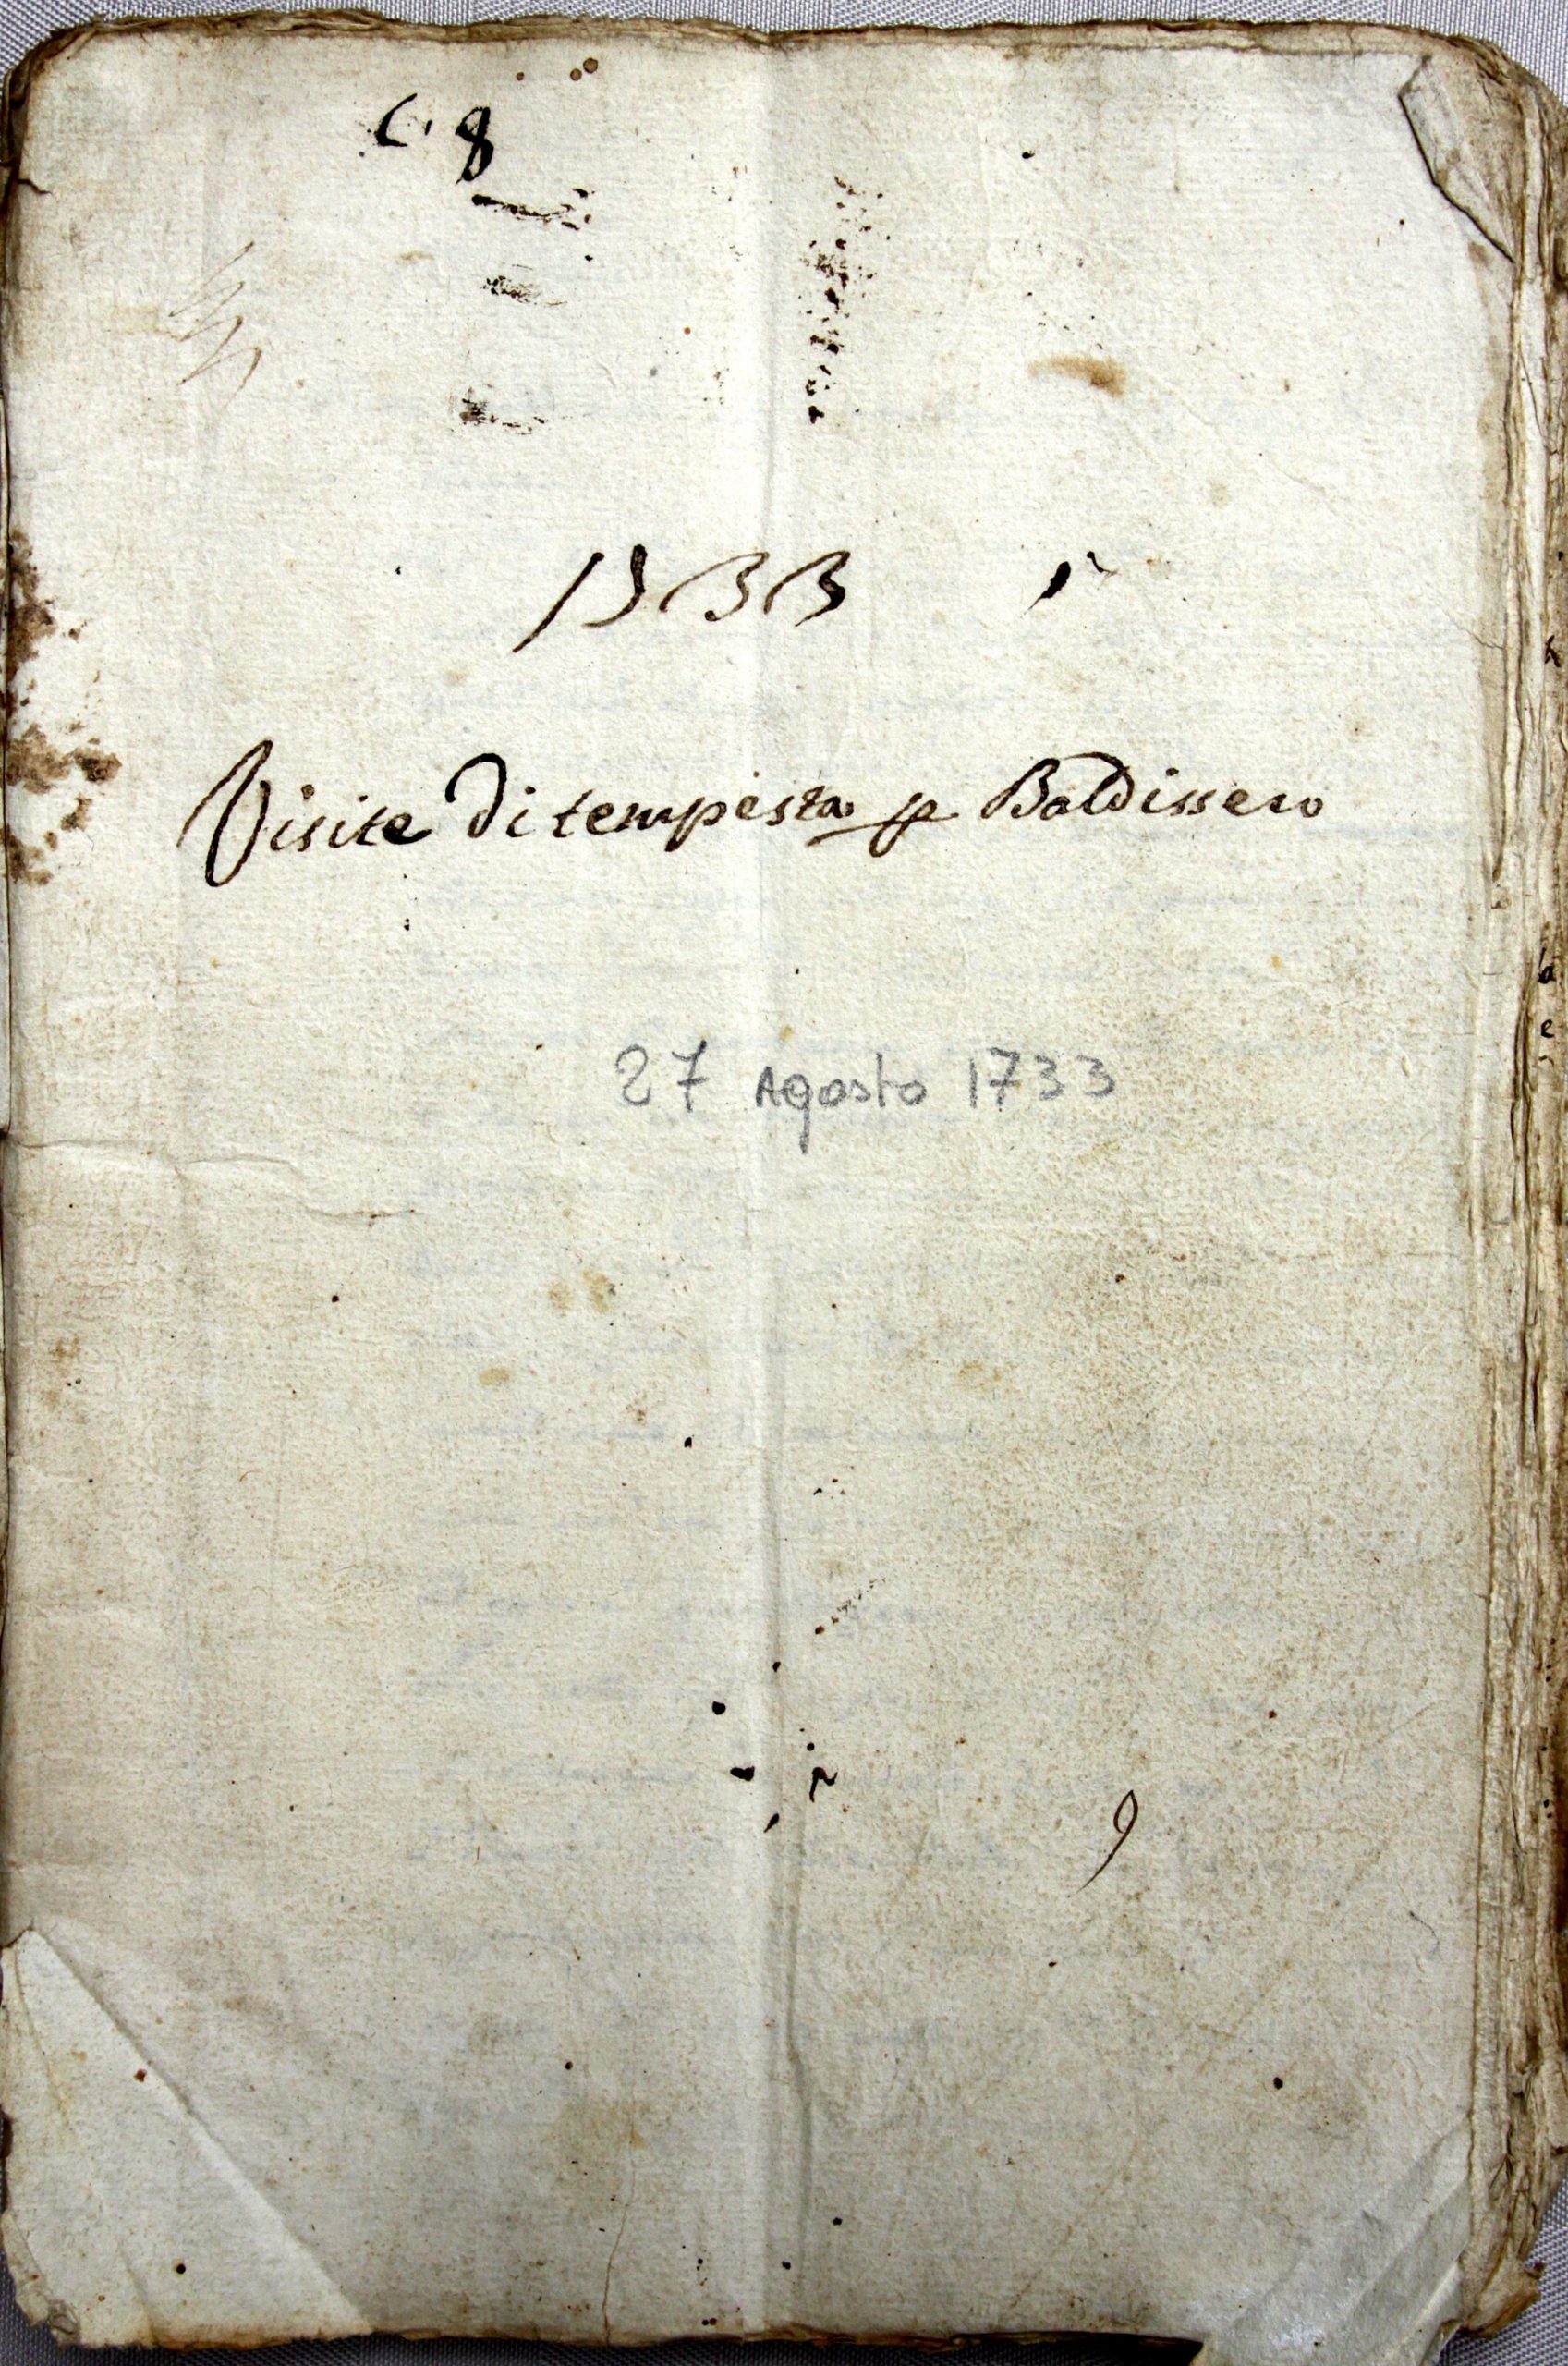 C. 8
1733
Visite di tempesta p Baldissero
27 Agosto 1733
9